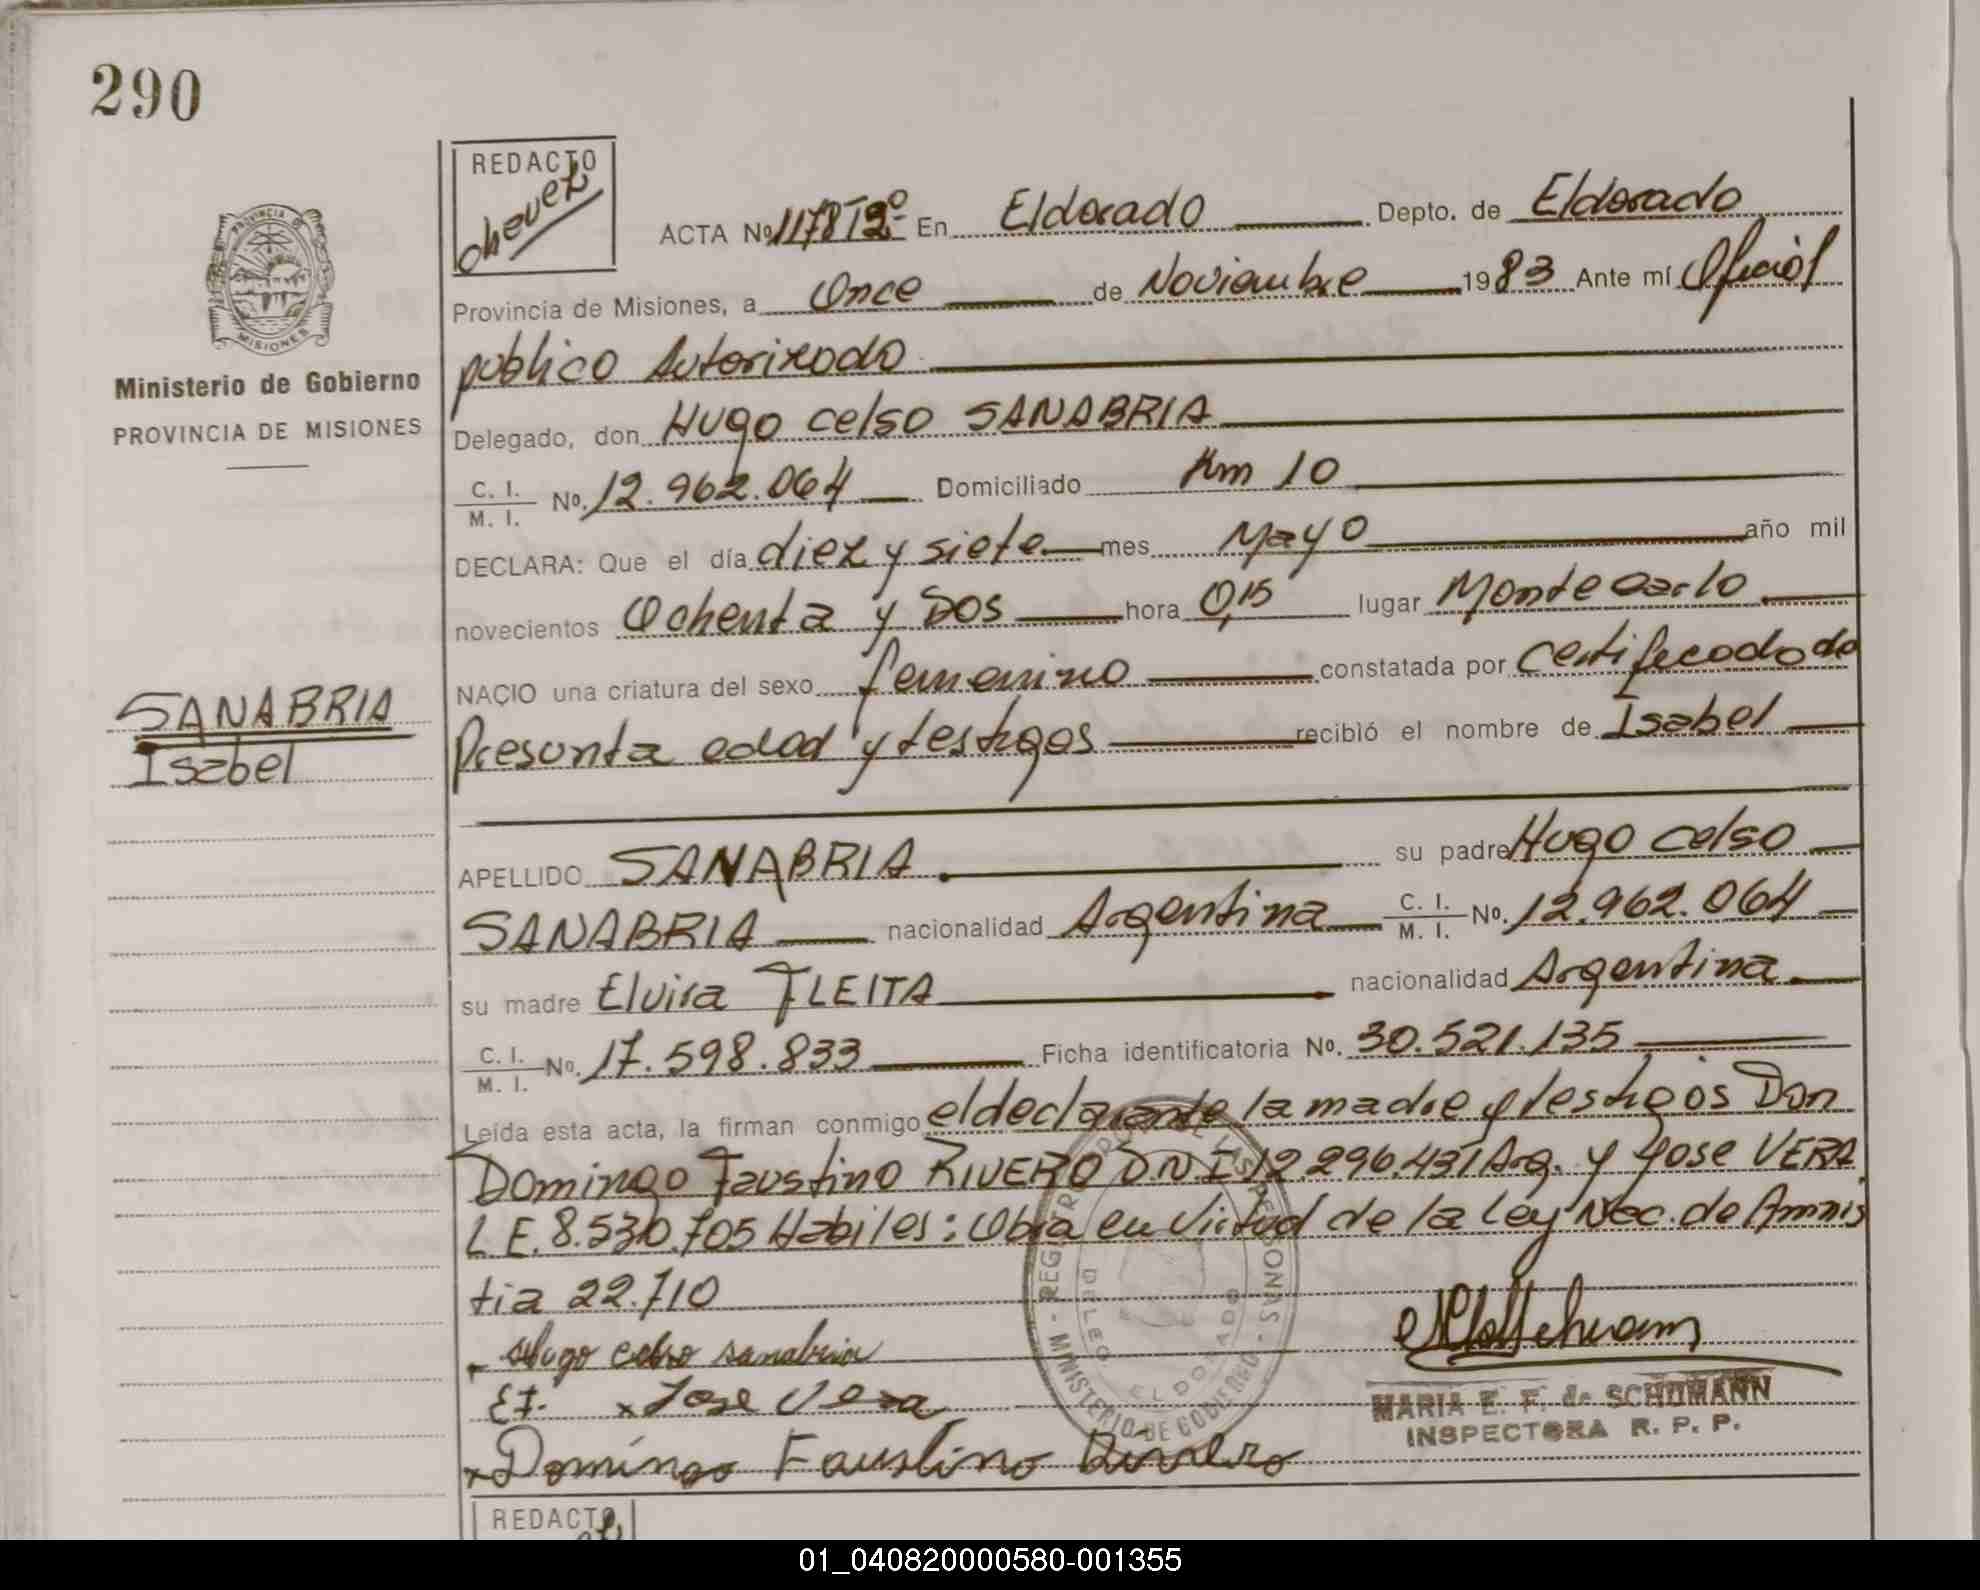 290
REDACTO
chavez
PROVINCIA DE
MISIONES
Ministerio de Gobierno
PROVINCIA DE MISIONES
ACTA Nº 1178 T2º En Eldorado Depto. de Eldorado
Provincia de Misiones, a Once de Noviembre 1983 Ante mí Oficial
publico Autorizado
Delegado, don Hugo Celso SANABRIA
C. I. / M. I. Nº. 12.962.064 Domiciliado Km 10
DECLARA: Que el día diez y siete mes Mayo año mil
novecientos Ochenta y Dos hora 0,15 lugar Montecarlo
SANABRIA
Isabel
NACIO una criatura del sexo femenino constatada por Certificado de
Presunta edad y testigos recibió el nombre de Isabel
APELLIDO SANABRIA su padre Hugo Celso
SANABRIA nacionalidad Argentina C. I. / M. I. Nº. 12.962.064
su madre Elvira FLEITA nacionalidad Argentina
C. I. / M. I. Nº. 17.598.833 Ficha identificatoria Nº. 30.521.135
Leída esta acta, la firman conmigo el declarante la madre y testigos Don
Domingo Faustino RIVERO D.N.I 12.296.431 Arg. y Jose VERA
L.E. 8.530.705 Habiles: Obra en Virtud de la Ley Nac. de Amnis
tia 22.710
Hugo celso sanabria
E F. x Jose Vera
x Domingo Faustino Rivero
REGISTRO PROV. DE LAS PERSONAS - MINISTERIO DE GOBIERNO -
ELDORADO
MARIA E. F. de SCHUMANN
INSPECTORA R. P. P.
REDACTO
01_040820000580-001355